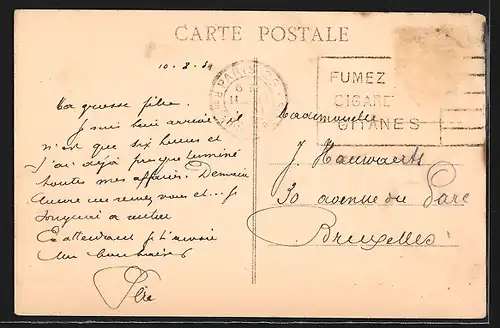 CARTE POSTALE
10-8-3
PARIS
FUMEZ
CIGARE
GITANES
Ma grosse
Je suis bien arrivé il
n'est que six heures et
J'ai déjà presque terminé
toutes mes affaires. Demain
rendez vous et
Songerai a
En attendant je t'envoie
Un bon baiser
Mademoiselle
J. Hauwaerts
30 avenue du Parc
Bruxelles